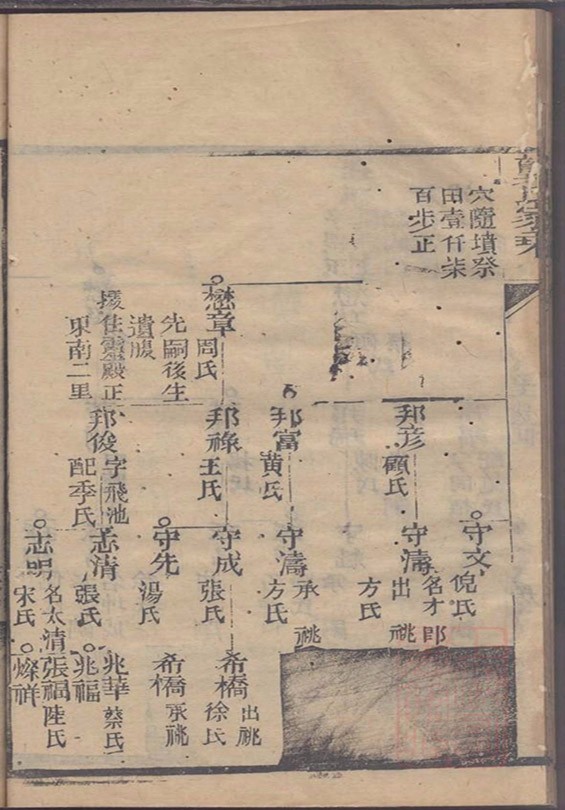 穴隨墳祭
田壹仟柒
百步正
守文
倪氏
邦彥
顧氏
守濤
名才郎
出祧
方氏
邦富
黄氏
守濤
承祧
方氏
懋章
周氏
先嗣後生
遺腹
邦祿
王氏
守成
張氏
希橋
出祧
徐氏
守先
湯氏
希橋
承祧
住靈殿正
東南二里
邦俊
字飛池
配季氏
志清
張氏
兆華
蔡氏
兆福
志明
名太清
宋氏
張福
陸氏
燦祥